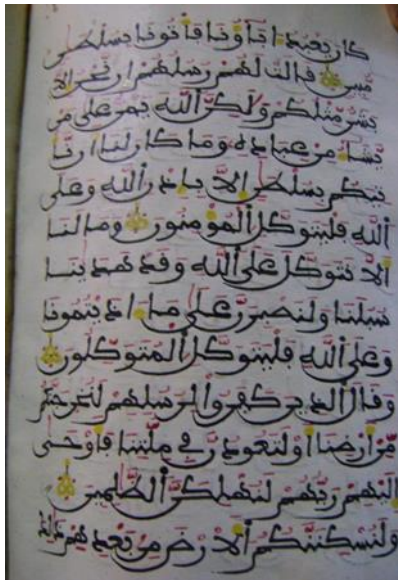 كان يعبد اباؤنا فاتونا بسلطن
مبين قالت لهم رسلهم ان نحن الا
بشر مثلكم ولكن الله يمن على من
يشاء من عباده وما كان لنا ان نا
تيكم بسلطن الا باذن الله وعلى
الله فليتوكل المومنون وما لنا
ألا نتوكل على الله وقد هدينا
سبلنا ولنصبرن على ما اذيتمونا
وعلى الله فليتوكل المتوكلون
وقال الذين كفروا لرسلهم لنخرجنكم
من ارضنا أو لتعودن في ملتنا فأوحى
اليهم ربهم لنهلكن الظلمين
ولنسكننكم الارض من بعدهم ذلك